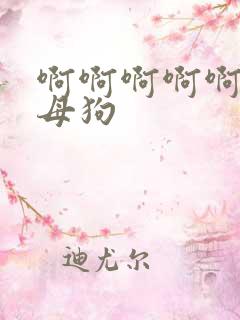 啊啊啊啊啊
母狗
迪尤尔